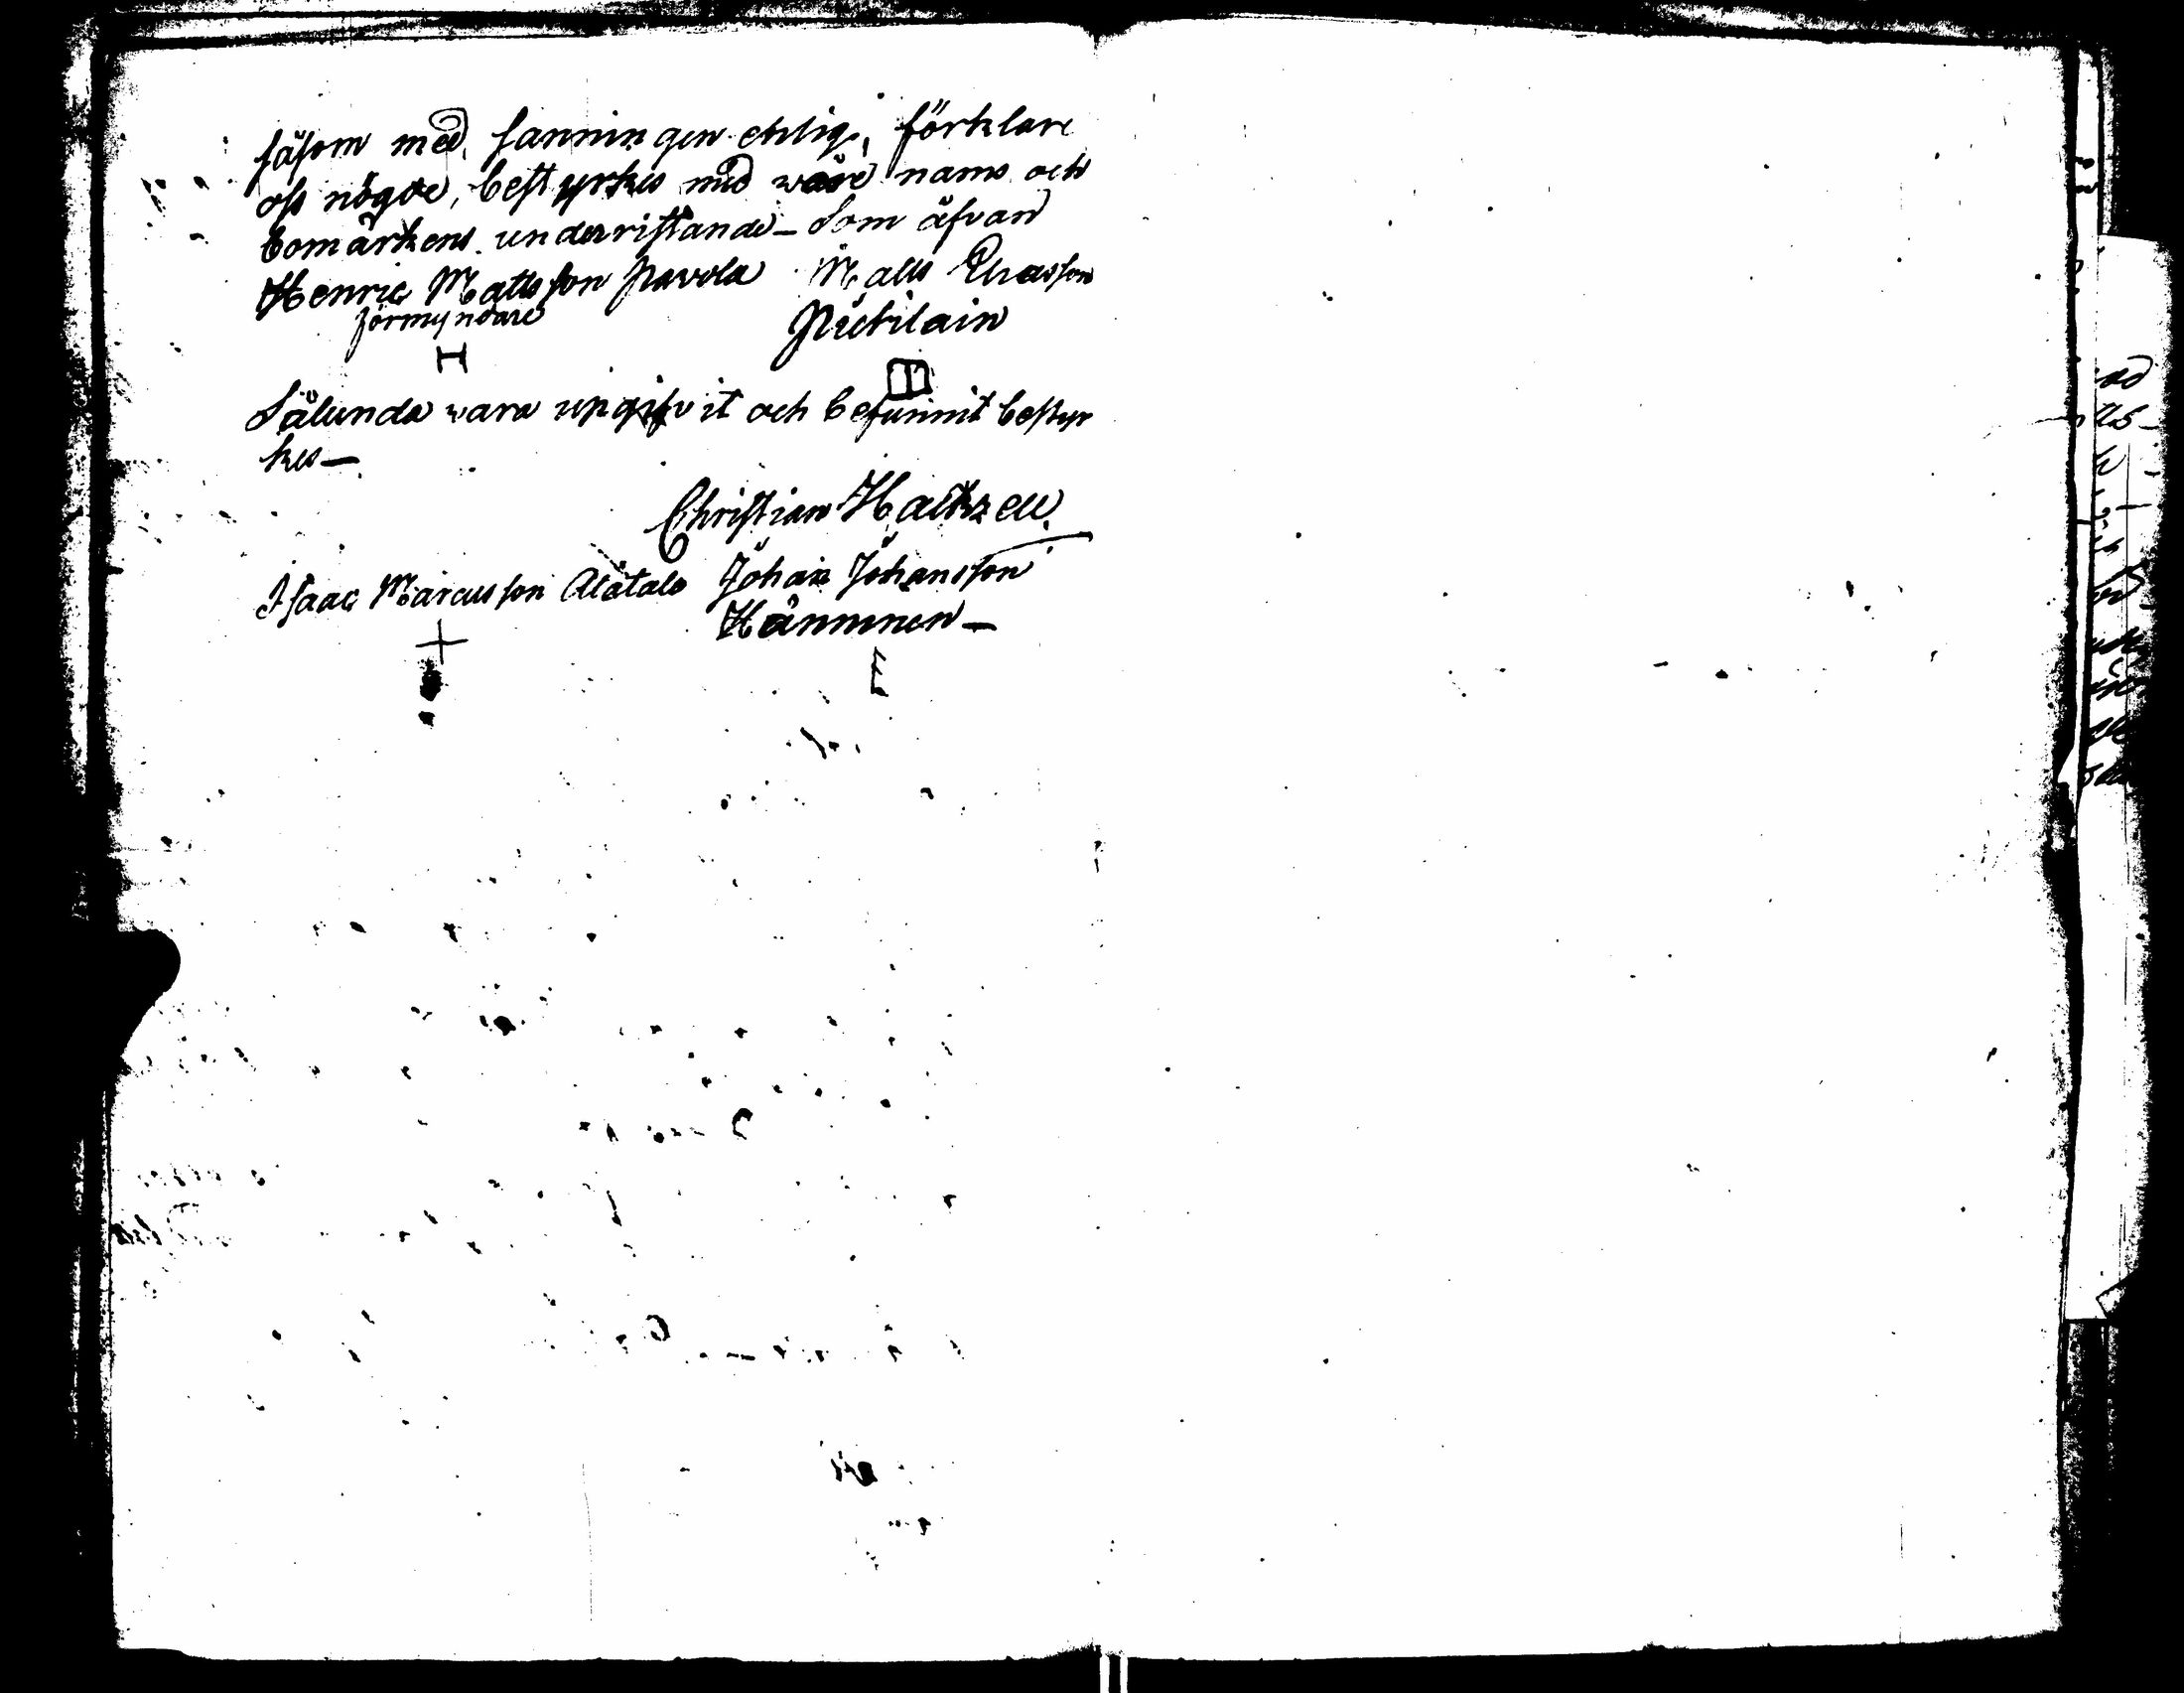 såsom med sanningen enlige, förklare
oss nögde, bestyrkes med wåre namn och
bomärkens underristande – Som åfvan
Henric Mattsson Pavola Matts Eliasson
förmyndare Pietilain
Sålunda wara upgifvit och befunnit bestyr
kes –
Christian Hallzell
Isaac Marcusson Alatalo Johan Johansson
Hänninen –